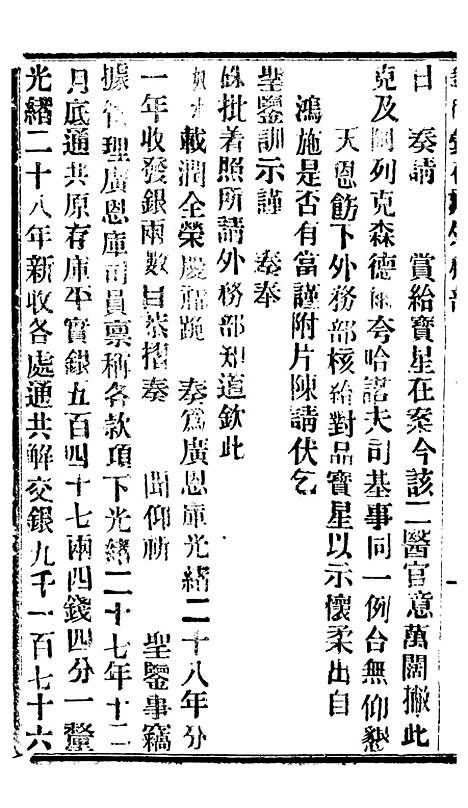 日　奏請　賞給寶星在案今該二醫官意萬闊撇此
克及闊列克森德　夸哈諾夫司基事同一例合無仰懇
天恩飭下外務部核給對品寶星以示懷柔出自
鴻施是否有當謹附片陳請伏乞
聖鑒訓示謹　奏奉
硃批着照所請外務部知道欽此
載潤全榮慶福跪　奏爲廣恩庫光緒二十八年分
一年收發銀兩數目恭摺奏　聞仰祈　聖鑒事竊
據管理廣恩庫司員稟稱各款項下光緒二十七年十二
月底通共原存庫平實銀五百四十七兩四錢四分一釐
光緒二十八年新收各處通共解交銀九千一百七十六